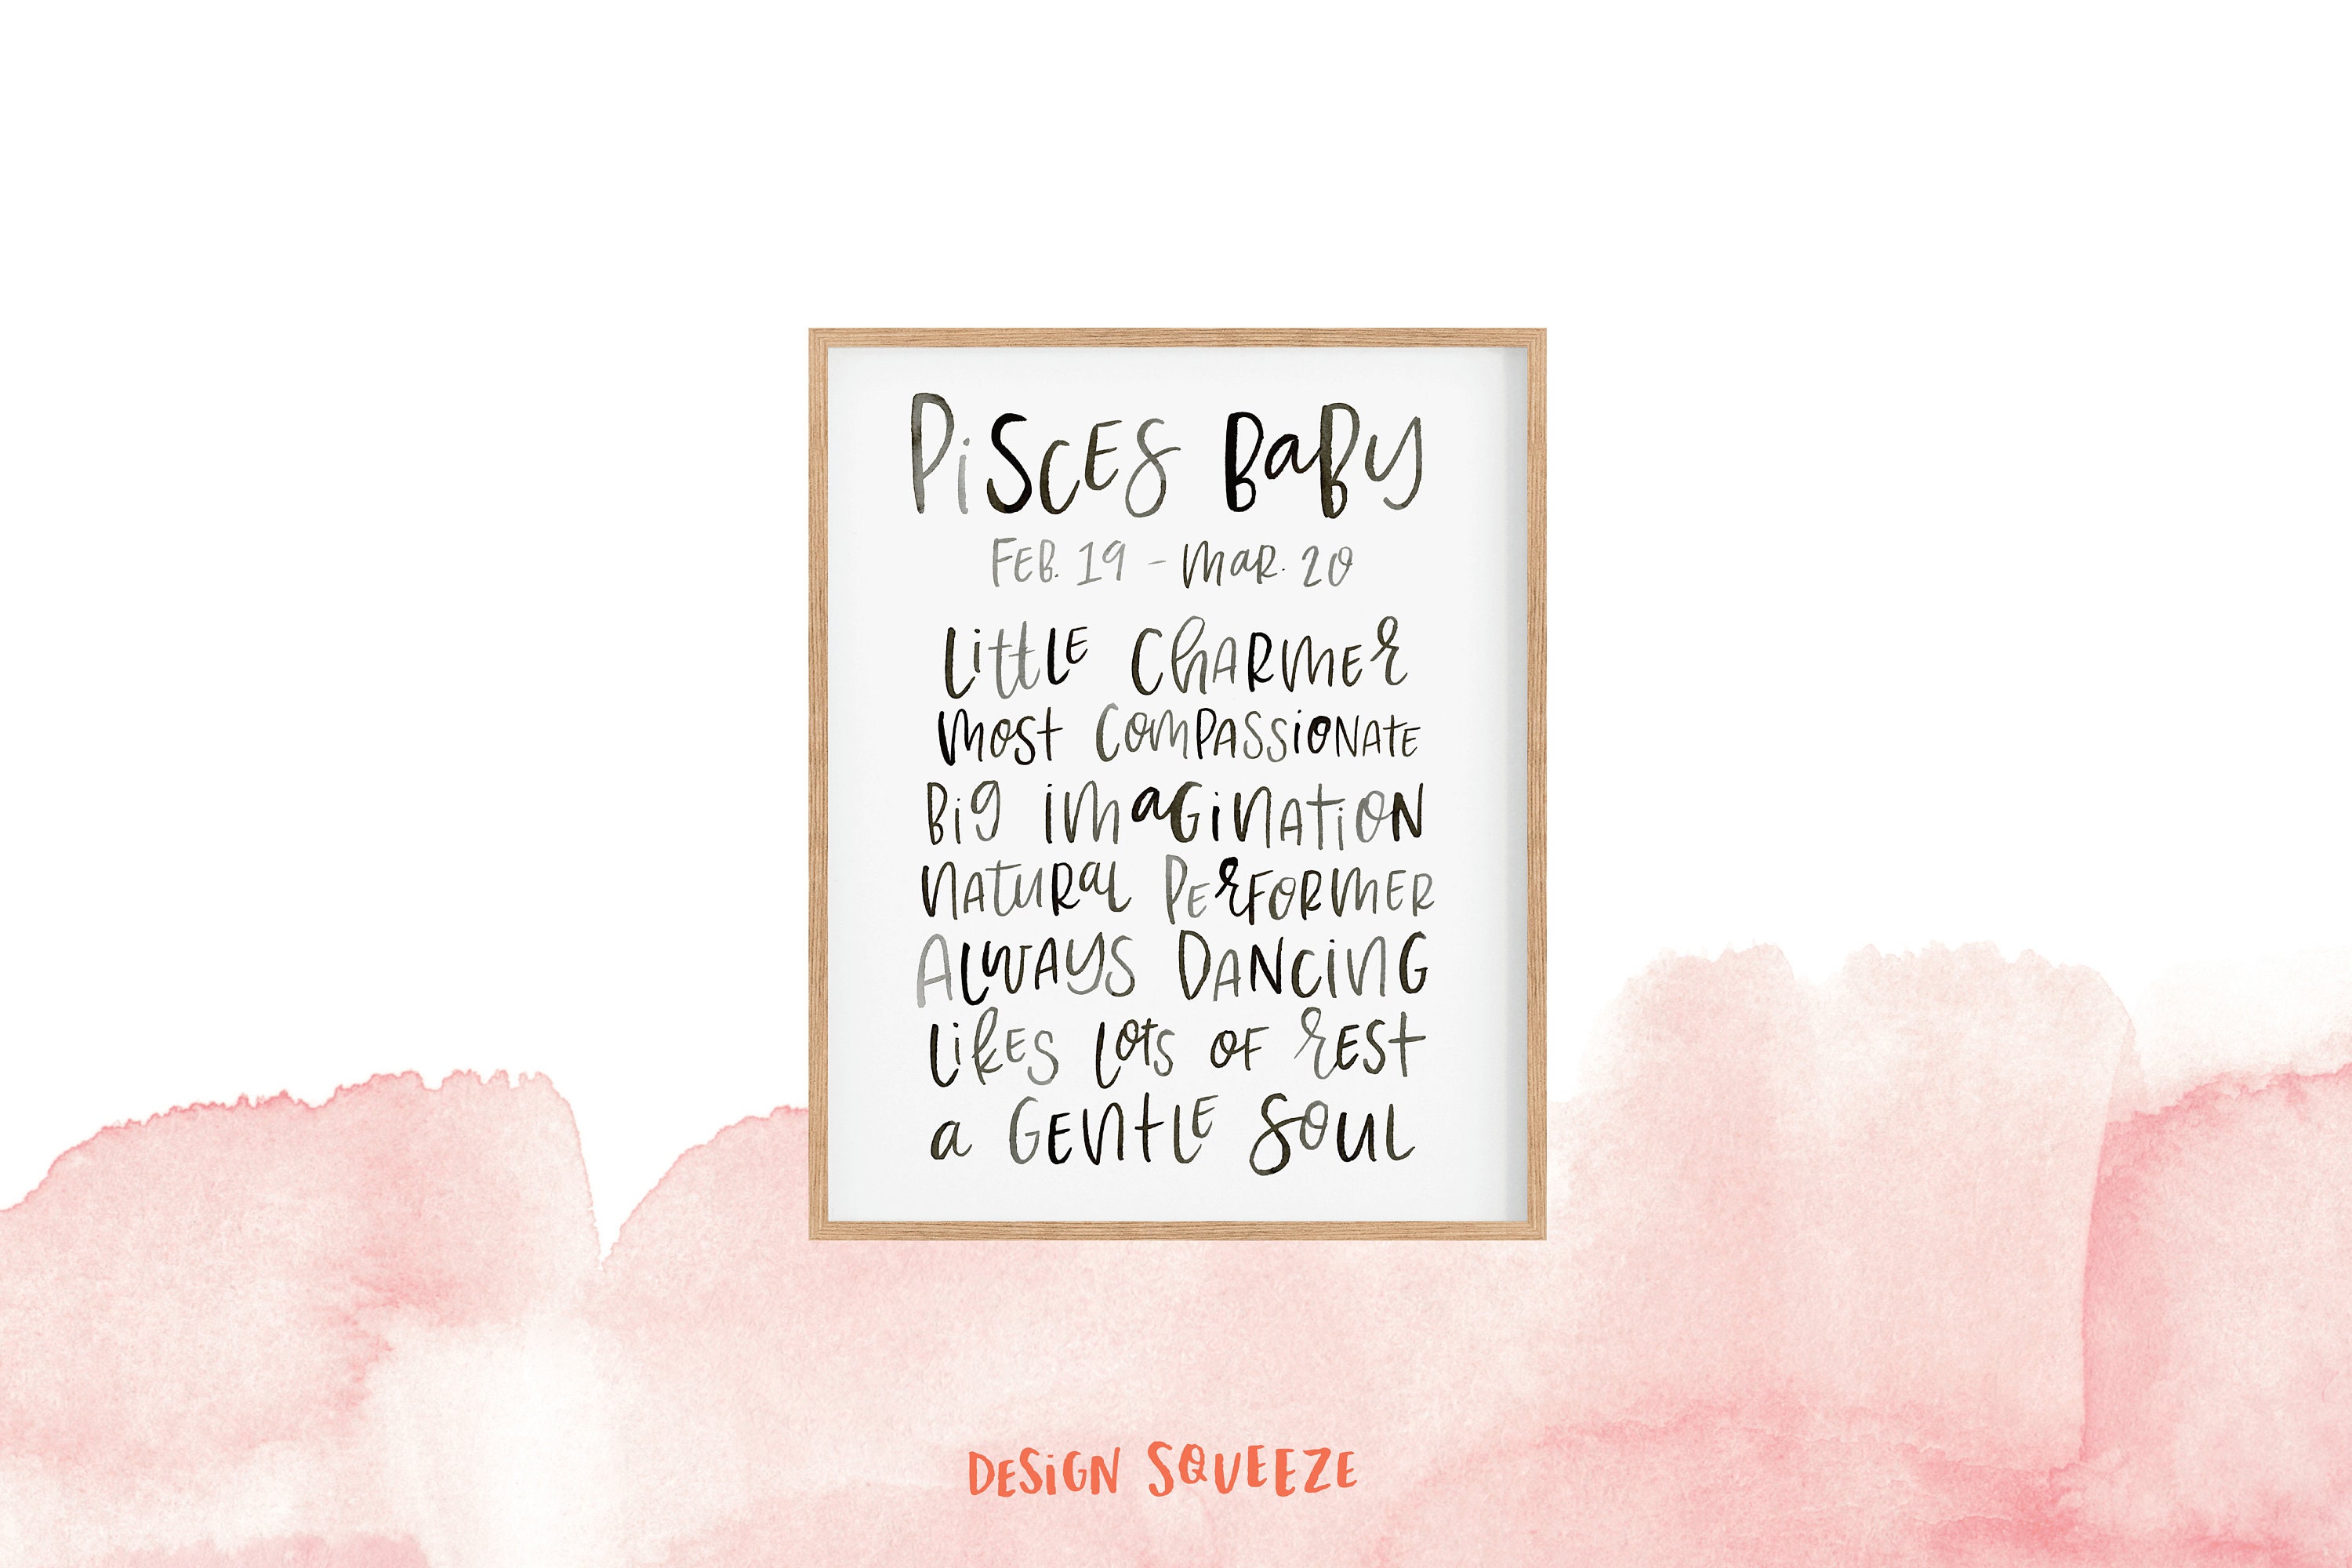 Pisces Baby
Feb. 19 - Mar. 20
Little Charmer
Most Compassionate
Big Imagination
Natural Performer
Always Dancing
Likes Lots of Rest
a Gentle Soul
DESIGN SQUEEZE